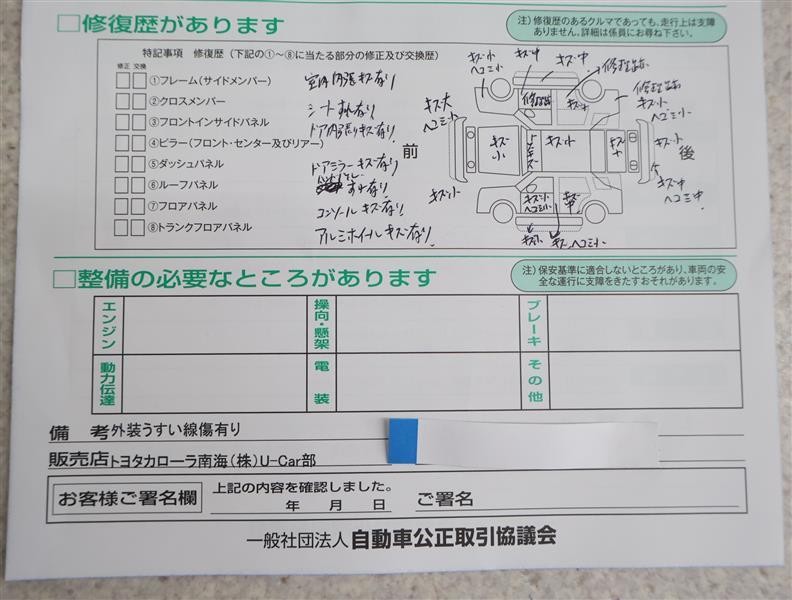 □修復歴があります
注）修復歴のあるクルマであっても、走行上は支障
ありません。詳細は係員にお尋ね下さい。
特記事項 修復歴（下記の①～⑧に当たる部分の修正及び交換歴）
修正 交換
①フレーム（サイドメンバー）
②クロスメンバー
③フロントインサイドパネル
④ピラー（フロント・センター及びリアー）
⑤ダッシュパネル
⑥ルーフパネル
⑦フロアパネル
⑧トランクフロアパネル
室内内張キズ有り
シートすれ有り
ドア内張りキズ有り
ドアミラーキズ有り
すれ有り
コンソールキズ有り
アルミホイールキズ有り
前
後
キズ小
ヘコミ小
キズ中
キズ中
修理跡
修理跡
キズ小
ヘコミ小
キズ大
ヘコミ小
修理跡
キズ小
キズ小
キズ小
キズ小
キズ中
ヘコミ中
キズ小
キズ小
ヘコミ小
キズ中
ヘコミ小
□整備の必要なところがあります
注）保安基準に適合しないところがあり、車両の安
全な運行に支障をきたすおそれがあります。
エンジン
操向・懸架
ブレーキ
動力伝達
電装
その他
備 考 外装うすい線傷有り
販売店 トヨタカローラ南海（株）U-Car部
お客様ご署名欄
上記の内容を確認しました。
年 月 日 ご署名
一般社団法人 自動車公正取引協議会